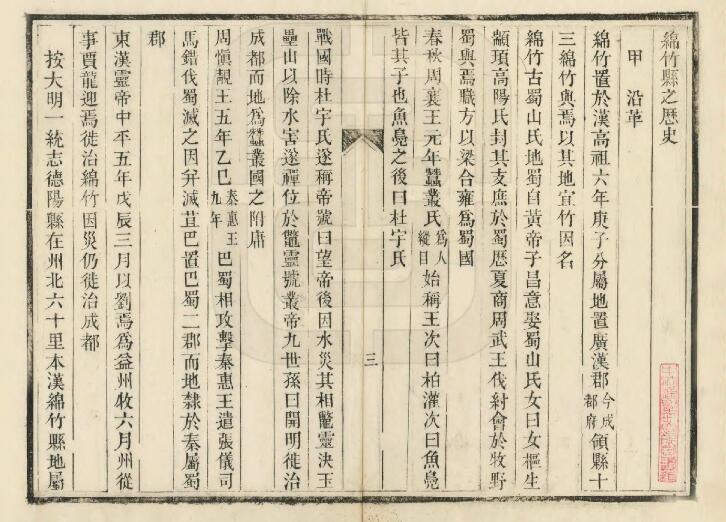 綿竹縣之歷史
甲 沿革
綿竹置於漢高祖六年庚子分屬地置廣漢郡今成都府領縣十
三綿竹與焉以其地宜竹因名
綿竹古蜀山氏地蜀自黃帝子昌意娶蜀山氏女曰女樞生
顓頊高陽氏封其支庶於蜀歷夏商周武王伐紂會於牧野
蜀與焉職方以梁合雍爲蜀國
春秋周襄王元年蠶叢氏爲人縱目始稱王次曰柏灌次曰魚鳧
皆其子也魚鳧之後曰杜宇氏
三
戰國時杜宇氏遂稱帝號曰望帝後因水災其相鼈靈決玉
壘山以除水害遂禪位於鼈靈號叢帝九世孫曰開明徙治
成都而地爲蠶叢國之附庸
周愼靚王五年乙巳秦惠王九年巴蜀相攻擊秦惠王遣張儀司
馬錯伐蜀滅之因并滅苴巴置巴蜀二郡而地隸於秦屬蜀
郡
東漢靈帝中平五年戊辰三月以劉焉爲益州牧六月州從
事賈龍迎焉徙治綿竹因災仍徙治成都
按大明一統志德陽縣在州北六十里本漢綿竹縣地屬